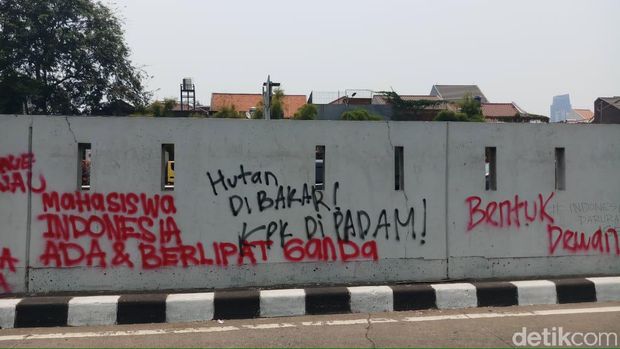 MAHASISWA
INDONESIA
ADA & BERLIPAT GANDA
Hutan
DI BAKAR!
KPK DI PADAM!
Bentuk
Dewan
INDONESIA
DARURA
detikcom